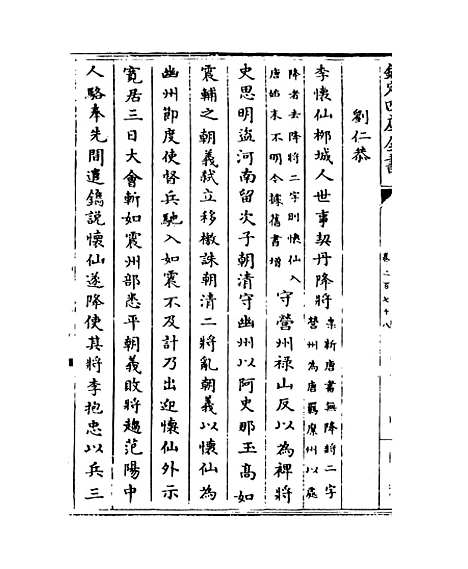 欽定四庫全書
卷二百七十八
劉仁恭
李懷仙柳城人世事契丹降將案新唐書無降將二字營州為唐羈縻州以處
降者去降將二字則懷仙入唐始末不明今據舊書增守營州祿山反以為裨將
史思明盜河南留次子朝清守幽州以阿史那玉高如
震輔之朝義弒立移檄誅朝清二將亂朝義以懷仙為
幽州節度使督兵馳入如震不及計乃出迎懷仙外示
寛居三日大會斬如震州部悉平朝義敗將趨范陽中
人駱奉先間遣鐫說懷仙遂降使其將李抱忠以兵三